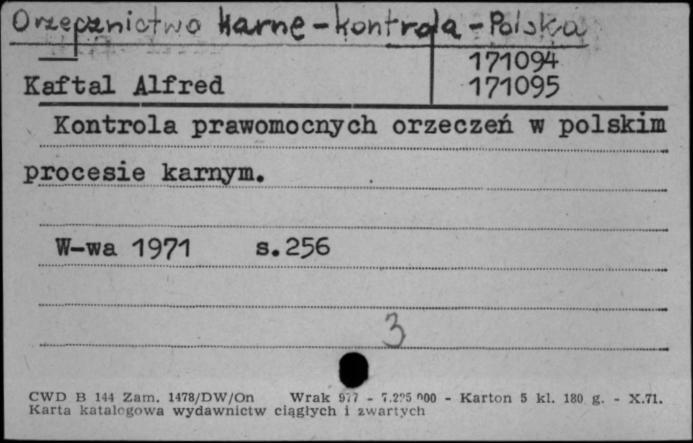 Orzecznictwo karne - kontrola - Polska
171094
Kaftal Alfred 171095
Kontrola prawomocnych orzeczeń w polskim
procesie karnym.
W-wa 1971 s.256
3
CWD B 144 Zam. 1478/DW/On Wrak 977 - 7.225 000 - Karton 5 kl. 180 g. - X.71.
Karta katalogowa wydawnictw ciągłych i zwartych